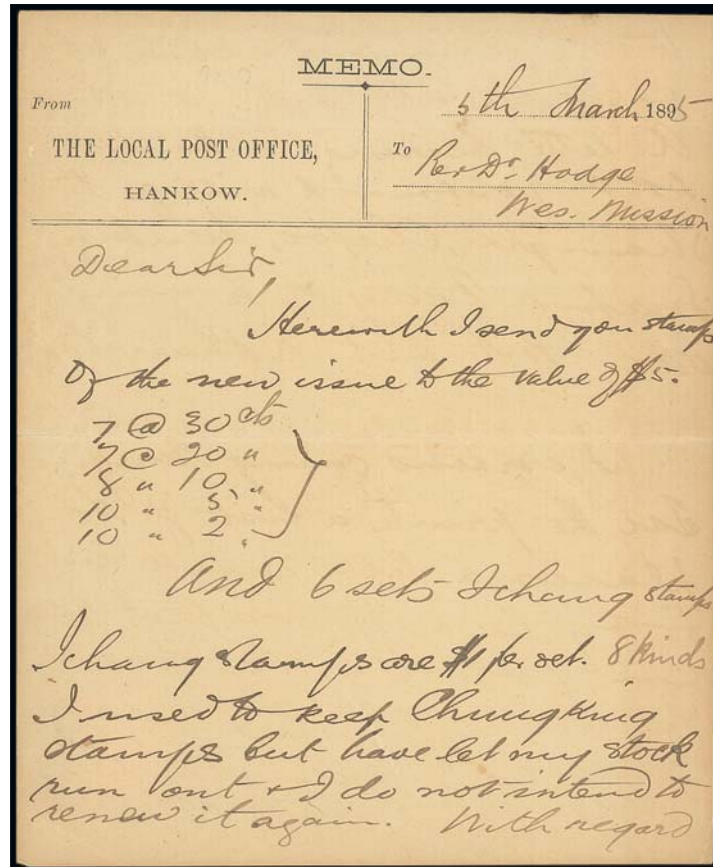 MEMO.
From
5th March 1895
THE LOCAL POST OFFICE,
HANKOW.
To
Rev Dr. Hodge
Wes. Mission
Dear Sir,
Herewith I send you stamps
of the new issue to the value of $5.
7 @ 30 cts
7 @ 20 "
8 " 10 "
10 " 5 "
10 " 2 "
And 6 sets Ichang stamps
Ichang stamps are $1 per set. 8 kinds
I used to keep Chungking
stamps but have let my stock
run out & I do not intend to
renew it again. With regard